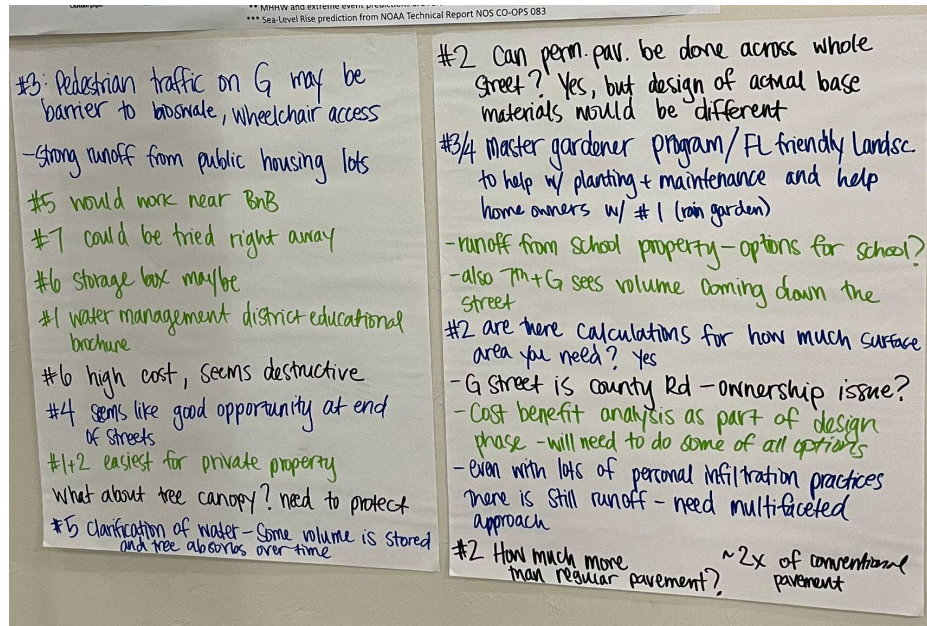 *** Sea-Level Rise prediction from NOAA Technical Report NOS CO-OPS 083
#3: Pedestrian traffic on G may be
barrier to bioswale, wheelchair access
-Strong runoff from public housing lots
#5 would work near BnB
#7 could be tried right away
#6 storage box maybe
#1 water management district educational
brochure
#6 high cost, seems destructive
#4 seems like good opportunity at end
of streets
#1+2 easiest for private property
What about tree canopy? need to protect
#5 Clarification of water - Some volume is stored
and tree absorbs over time
#2 Can perm. pav. be done across whole
street? Yes, but design of actual base
materials would be different
#3/4 master gardener program/FL friendly Landsc
to help w/ planting + maintenance and help
home owners w/ #1 (rain garden)
-runoff from school property - options for school?
-also 7th + G sees volume coming down the
street
#2 are there calculations for how much surface
area you need? Yes
- G Street is county Rd - ownership issue?
- Cost benefit analysis as part of design
phase - will need to do some of all options
-even with lots of personal infiltration practices
there is still runoff - need multifaceted
approach
#2 How much more
than regular pavement?
~2x of conventional
pavement